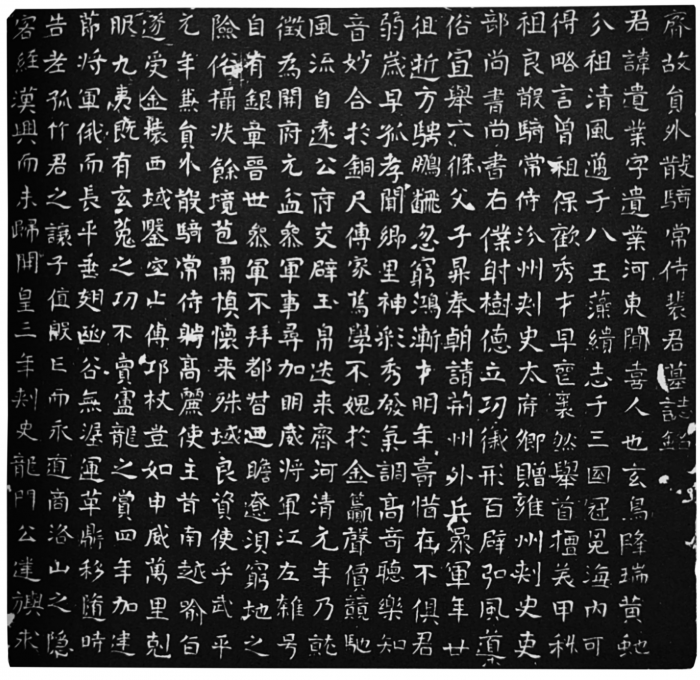 齊故員外散騎常侍裴君墓誌銘
君諱遺業字遺業河東聞喜人也玄鳥降瑞黃虵
分祖清風邁于八王藻繢志于三國冠冕海內可
得略言曾祖保歡秀才早襃然舉首擅美甲科
祖良散騎常侍汾州刺史太府卿贈雍州刺史吏
部尚書尚書右僕射樹德立功徽形百辟弘風道
俗宣舉六條父子昇奉朝請荊州外兵參軍年廿
徂逝方騁鵬翩忽窮鴻漸才明年壽惜在不俱君
弱歲早孤孝聞鄉里神彩秀發氣調高奇聰樂知
音妙合於銅尺傳家篤學不媿於金籯聲價競馳
風流自遠公府交辟玉帛迭来齊河清元年乃就
徵為開府元益參軍事尋加明威將軍江左雜号
自有銀章晉世參軍不拜都督迴瞻遼浿窮地之
險俗攝餘境苞肅慎懷来殊域良資使乎武平
元年兼員外散騎常侍聘高麗使主昔南越喻白
遂受金裝西域鑿空止傳邛杖豈如申威萬里剋
服九夷既有玄菟之功不賣盧龍之賞四年加建
節將軍俄而長平垂翅函谷無渥運革鼎移隨時
告老孤竹君之讓子位殷亡而永逝商洛山之隱
客經漢興而未歸開皇三年刺史龍門公建旟求